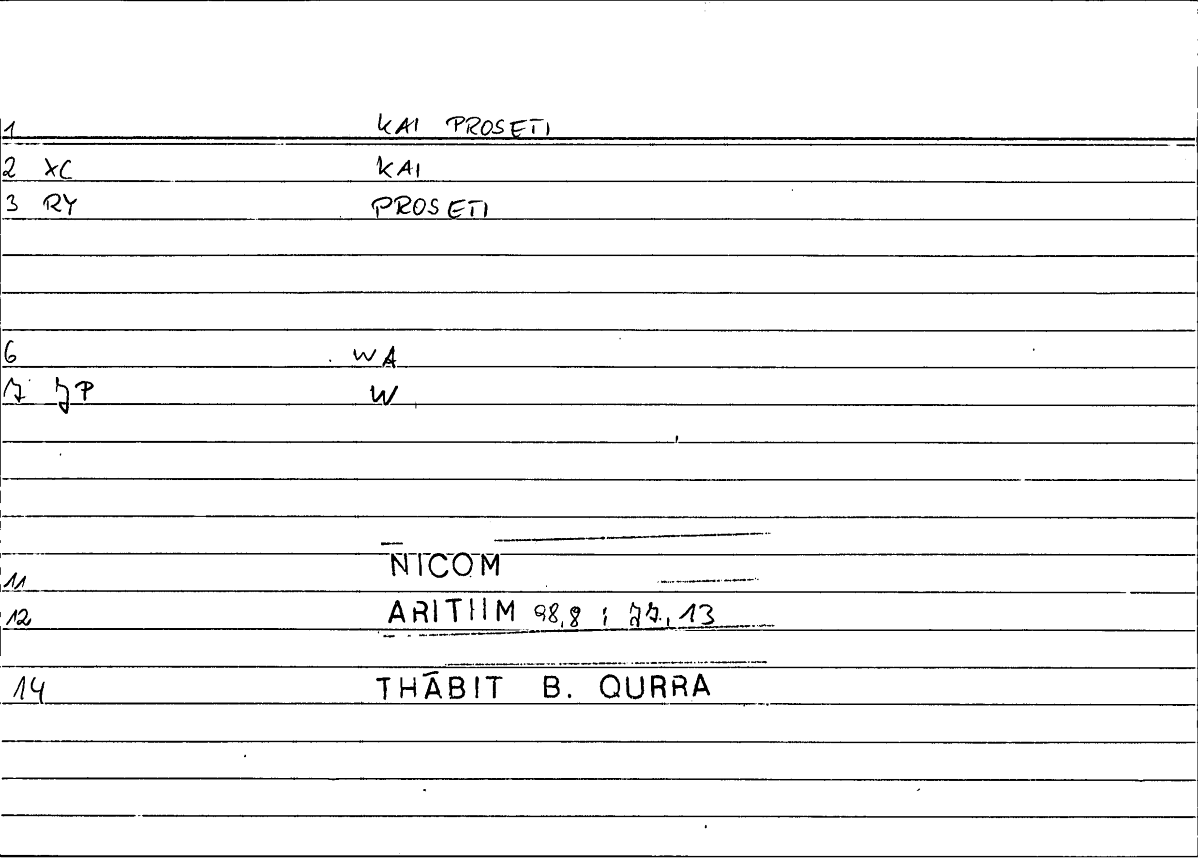 1 KAI PROSETI
2 XC KAI
3 RY PROSETI
6 WA
7 JP W
11 NICOM
12 ARITHM 98,8 ; 77,13
14 THĀBIT B. QURRA